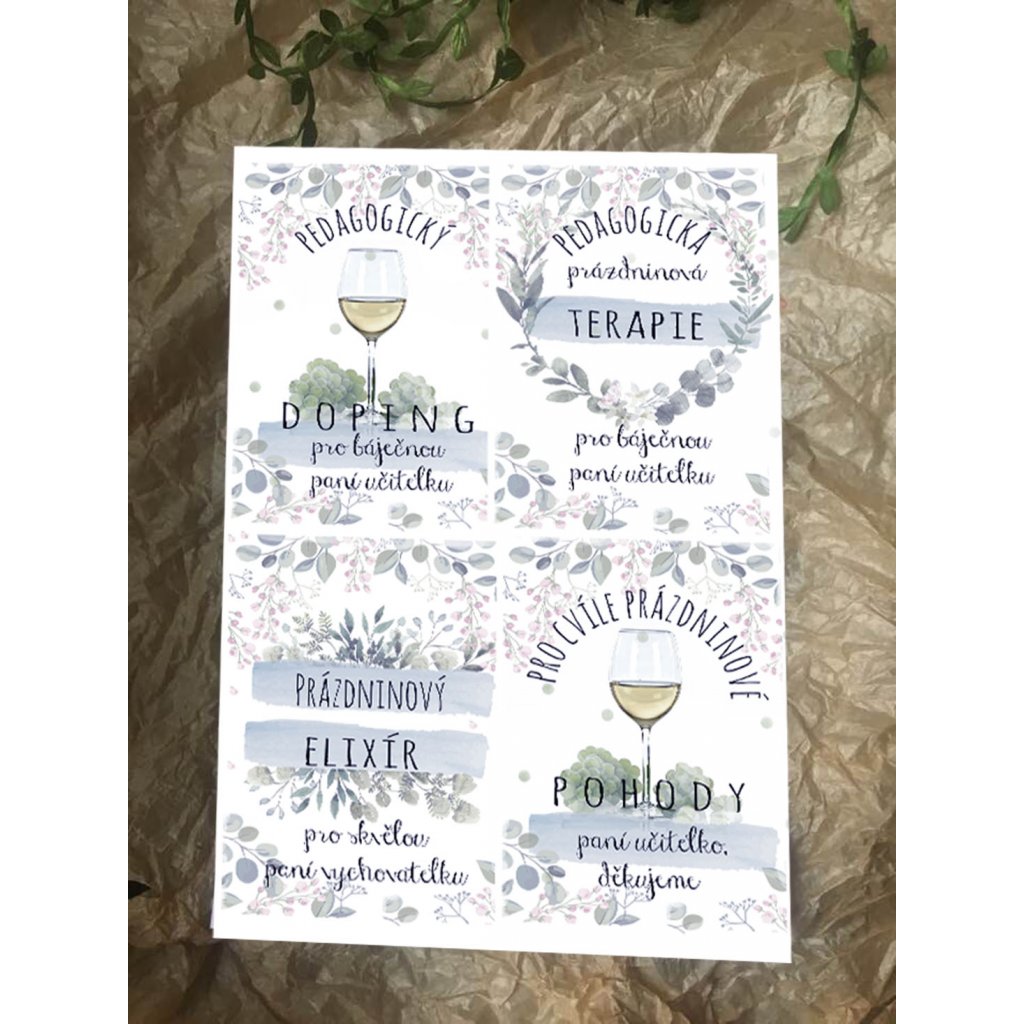 PEDAGOGICKÝ
DOPING
pro báječnou
paní učitelku
PEDAGOGICKÁ
prázdninová
TERAPIE
pro báječnou
paní učitelku
PRÁZDNINOVÝ
ELIXÍR
pro skvělou
paní vychovatelku
PRO CVÍLE PRÁZDNINOVÉ
POHODY
paní učitelko,
děkujeme